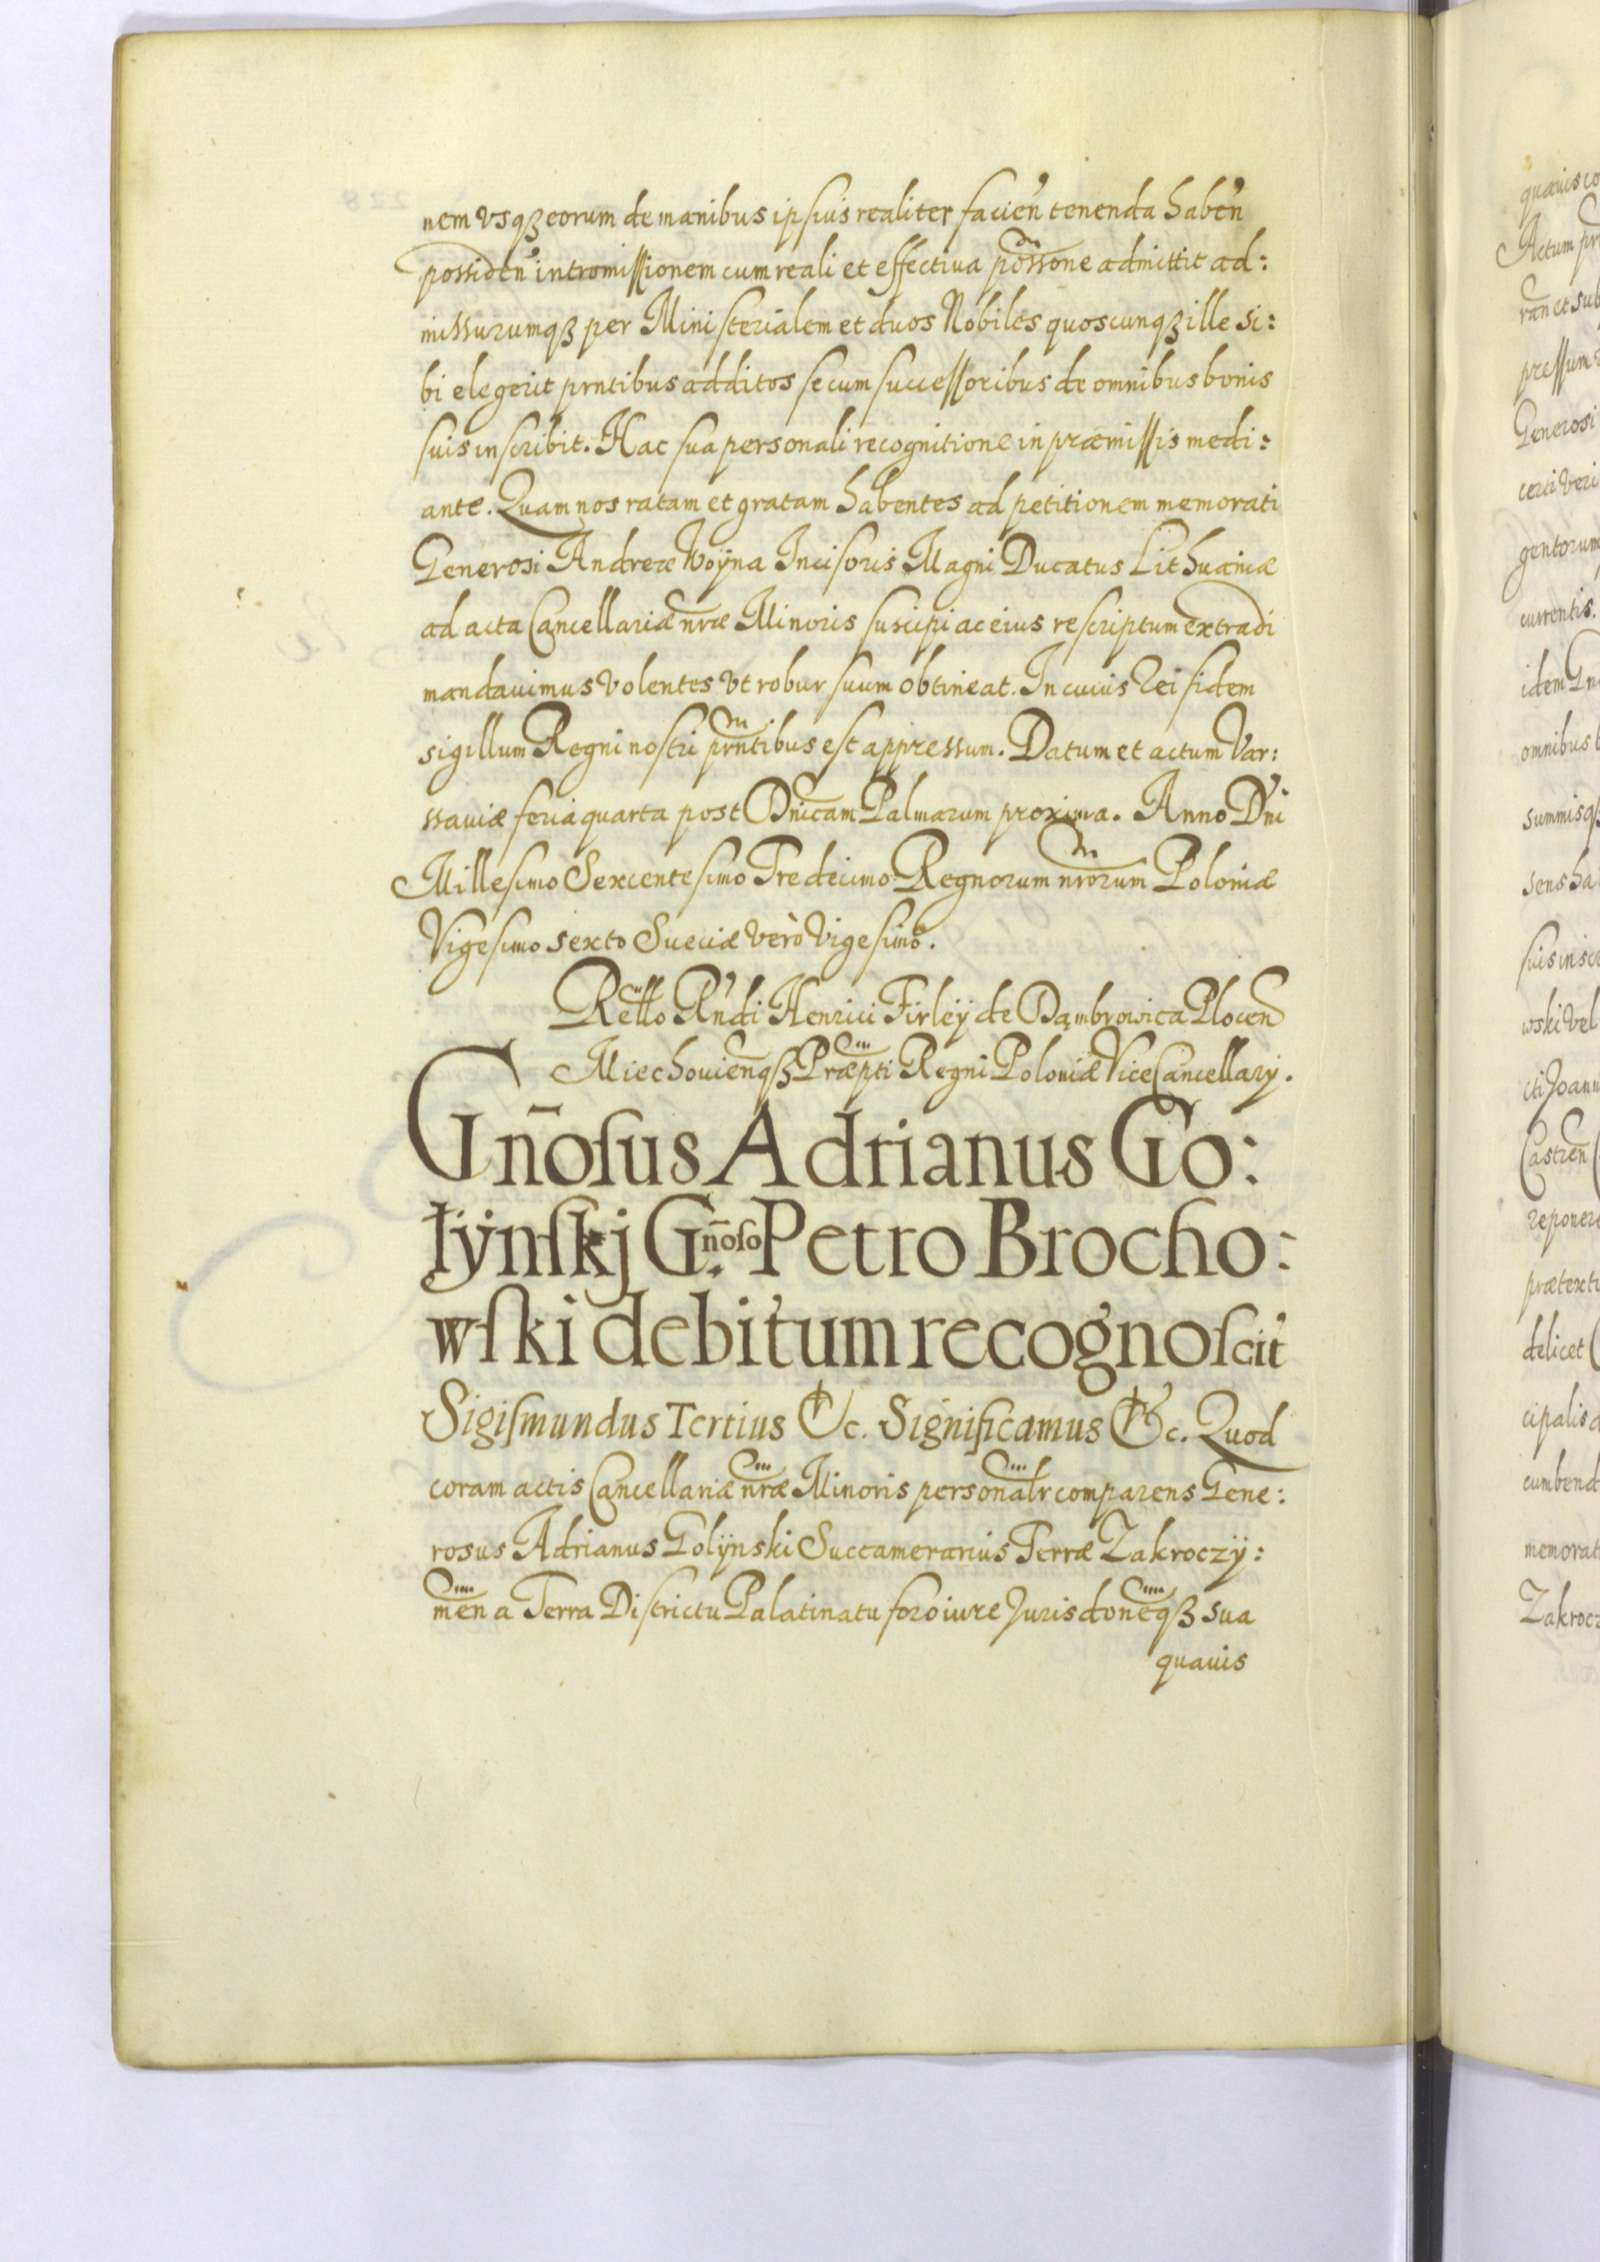 nem vsqȝ eorum de manibus ipsius realiter facien̄ tenenda haben̄
possiden̄ intromissionem cum reali et effectiua poss̄one admittit ad:
missurumqȝ per Ministerialem et duos Nobiles quoscunqȝ ille si:
bi elegerit prntibus additos secum successoribus de omnibus bonis
suis inscribit. Hac sua personali recognitione in præmissis medi:
ante. Quam nos ratam et gratam habentes ad petitionem memorati
Generosi Andreæ Woÿna Incisoris Magni Ducatus Lithuaniæ
ad acta Cancellariæ nr̄æ Minoris suscipi ac eius rescriptum extradi
mandauimus volentes vt robur suum obtineat. In cuius rei fidem
sigillum Regni nostri prn̄tibus est appressum. Datum et actum Var:
ssauiæ feria quarta post Dnīcam Palmarum proxima. Anno Dn̄i
Millesimo Sexcentesimo Tredecimo Regnorum nr̄orum Poloniæ
Vigesimo sexto Sueciæ verò vigesimo.
Rell̄o Rn̄di Henrici Firleÿ de Dąmbrowica Plocen̄
Miechouien̄qȝ Præp̄ti Regni Poloniæ ViceCancellarÿ.
Gn̄oſus Adrianus Go:
łÿnſkj Gn̄oſo Petro Brocho:
wſki debitum recognoſcit
Sigiſmundus Tertius &c. Significamus &c. Quod
coram actis Cancellariæ nr̄æ Minoris personal̄r comparens Gene:
rosus Adrianus Golÿnski Succamerarius Terræ Zakroczÿ:
men̄ a Terra Districtu Palatinatu foro iure Jurisdon̄eqȝ sua
quauis
quauis co
Actum pr
ran et sub
pressum
Generosi
certi veri
gentorum
currentis.
idem Gn
omnibus b
summisqȝ
sens ha
suis inscr
wski vel
cti Joann
Castren̄
reponere
prætextu
delicet
cipalis
cumbend
memorat
Zakrocz